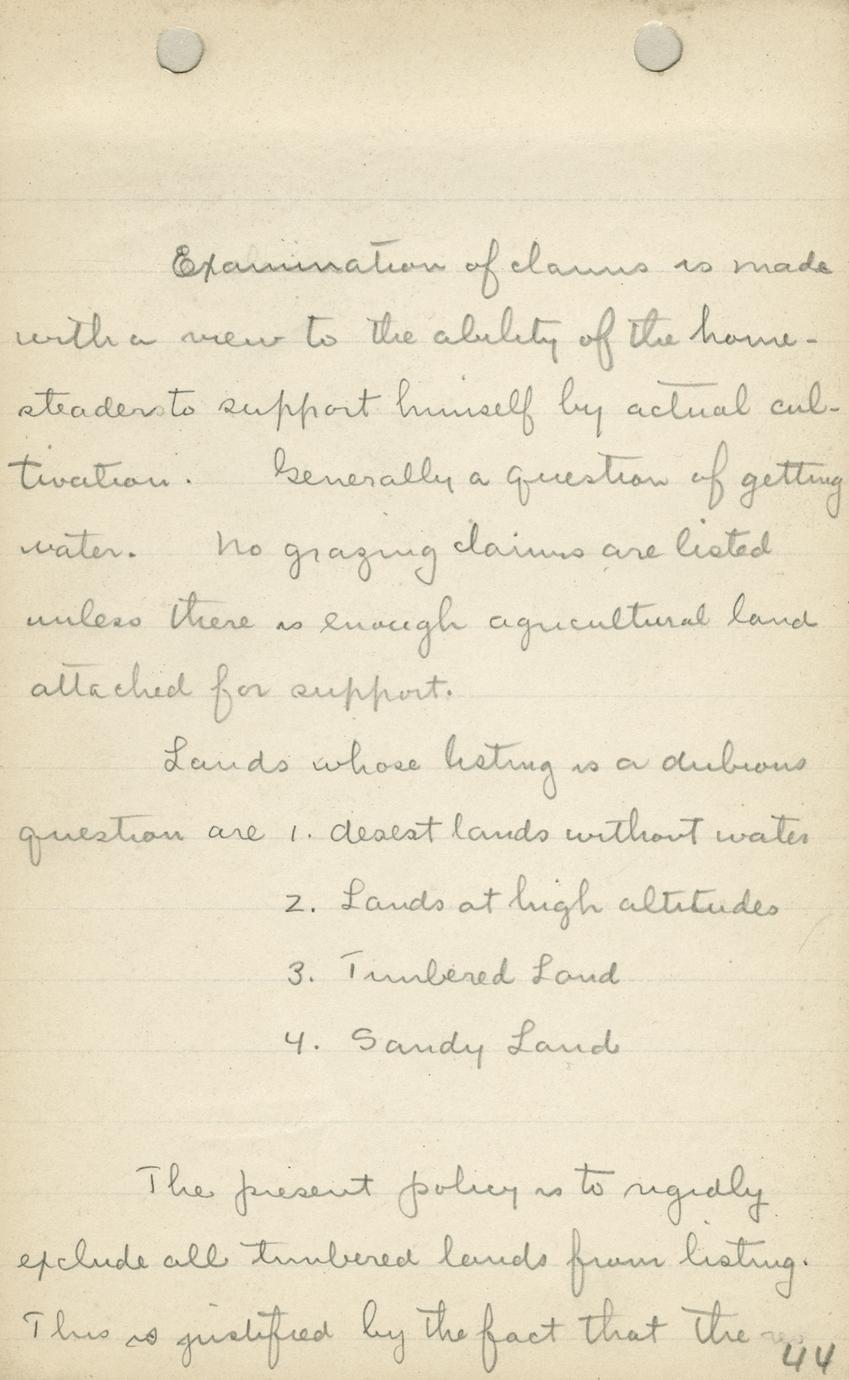 Examination of claims is made
with a view to the ability of the home-
steader to support himself by actual cul-
tivation. Generally a question of getting
water. No grazing claims are listed
unless there is enough agricultural land
attached for support.
Lands whose listing is a dubious
question are 1. desert lands without water
2. Lands at high altitudes
3. Timbered Land
4. Sandy Land
The present policy is to rigidly
exclude all timbered lands from listing.
This is justified by the fact that the
44